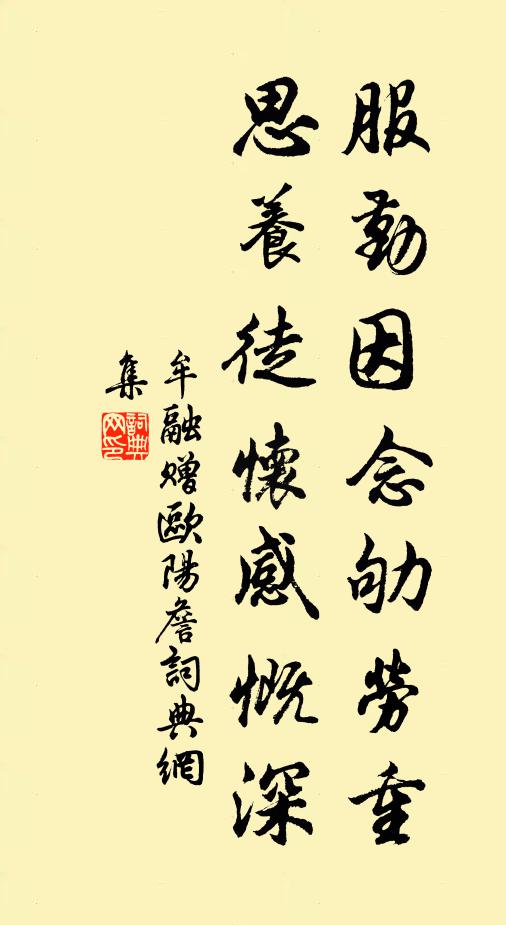 服勤因念劬勞重
思養徒懷感慨深
牟融贈歐陽詹詞典網
集
詞典
网印